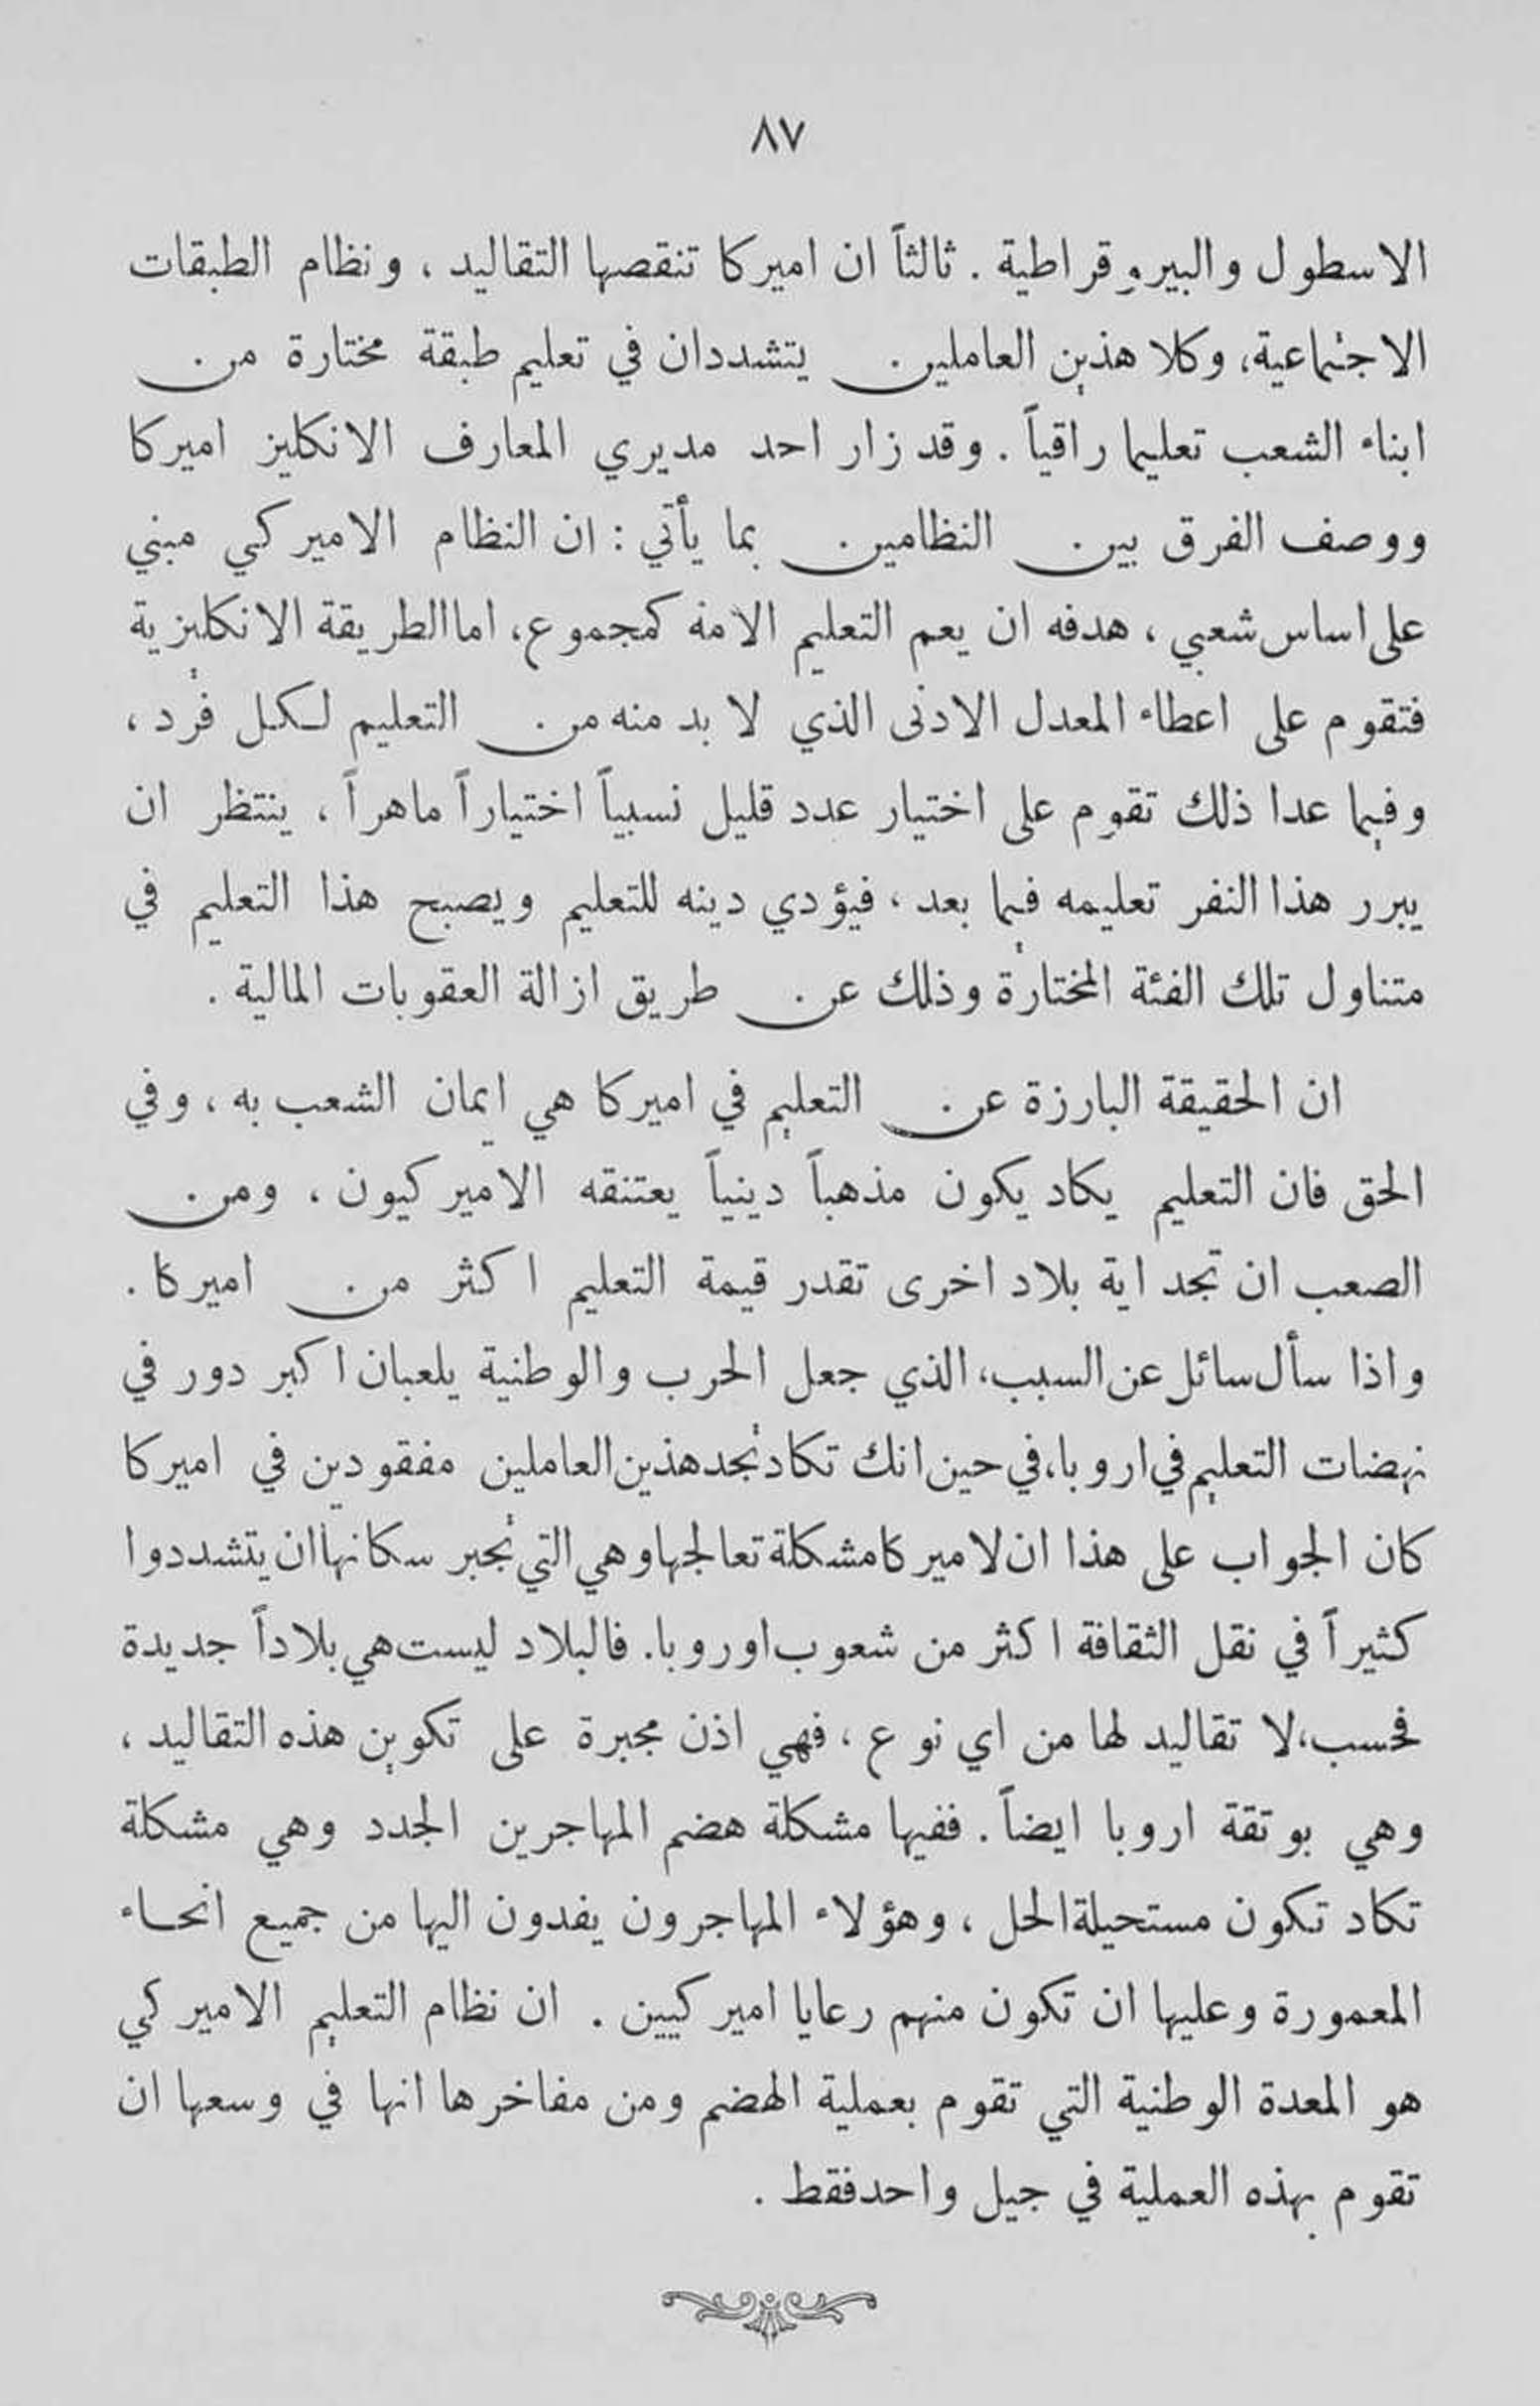 ٨٧
الاسطول والبيروقراطية . ثالثاً ان اميركا تنقصها التقاليد ، ونظام الطبقات
الاجتماعية، وكلا هذين العاملين يتشددان في تعليم طبقة مختارة من
ابناء الشعب تعليما راقياً . وقد زار احد مديري المعارف الانكليز اميركا
ووصف الفرق بين النظامين بما يأتي : ان النظام الاميركي مبني
على اساس شعبي ، هدفه ان يعم التعليم الامة كمجموع، اما الطريقة الانكليزية
فتقوم على اعطاء المعدل الادنى الذي لا بد منه من التعليم لكل فرد ،
وفيما عدا ذلك تقوم على اختيار عدد قليل نسبياً اختياراً ماهراً ، ينتظر ان
يبرر هذا النفر تعليمه فيما بعد ، فيؤدي دينه للتعليم ويصبح هذا التعليم في
متناول تلك الفئة المختارة وذلك عن طريق ازالة العقوبات المالية .
ان الحقيقة البارزة عن التعليم في اميركا هي ايمان الشعب به ، وفي
الحق فان التعليم يكاد يكون مذهباً دينياً يعتنقه الاميركيون ، ومن
الصعب ان تجد اية بلاد اخرى تقدر قيمة التعليم اكثر من اميركا .
واذا سأل سائل عن السبب، الذي جعل الحرب والوطنية يلعبان اكبر دور في
نهضات التعليم في اروبا، في حين انك تكاد تجد هذين العاملين مفقودين في اميركا
كان الجواب على هذا ان لاميركا مشكلة تعالجها وهي التي تجبر سكانها ان يتشددوا
كثيراً في نقل الثقافة اكثر من شعوب اوروبا. فالبلاد ليست هي بلاداً جديدة
فحسب، لا تقاليد لها من اي نوع ، فهي اذن مجبرة على تكوين هذه التقاليد ،
وهي بوتقة اروبا ايضاً . ففيها مشكلة هضم المهاجرين الجدد وهي مشكلة
تكاد تكون مستحيلة الحل ، وهؤلاء المهاجرون يفدون اليها من جميع انحاء
المعمورة وعليها ان تكون منهم رعايا اميركيين . ان نظام التعليم الاميركي
هو المعدة الوطنية التي تقوم بعملية الهضم ومن مفاخرها انها في وسعها ان
تقوم بهذه العملية في جيل واحد فقط .